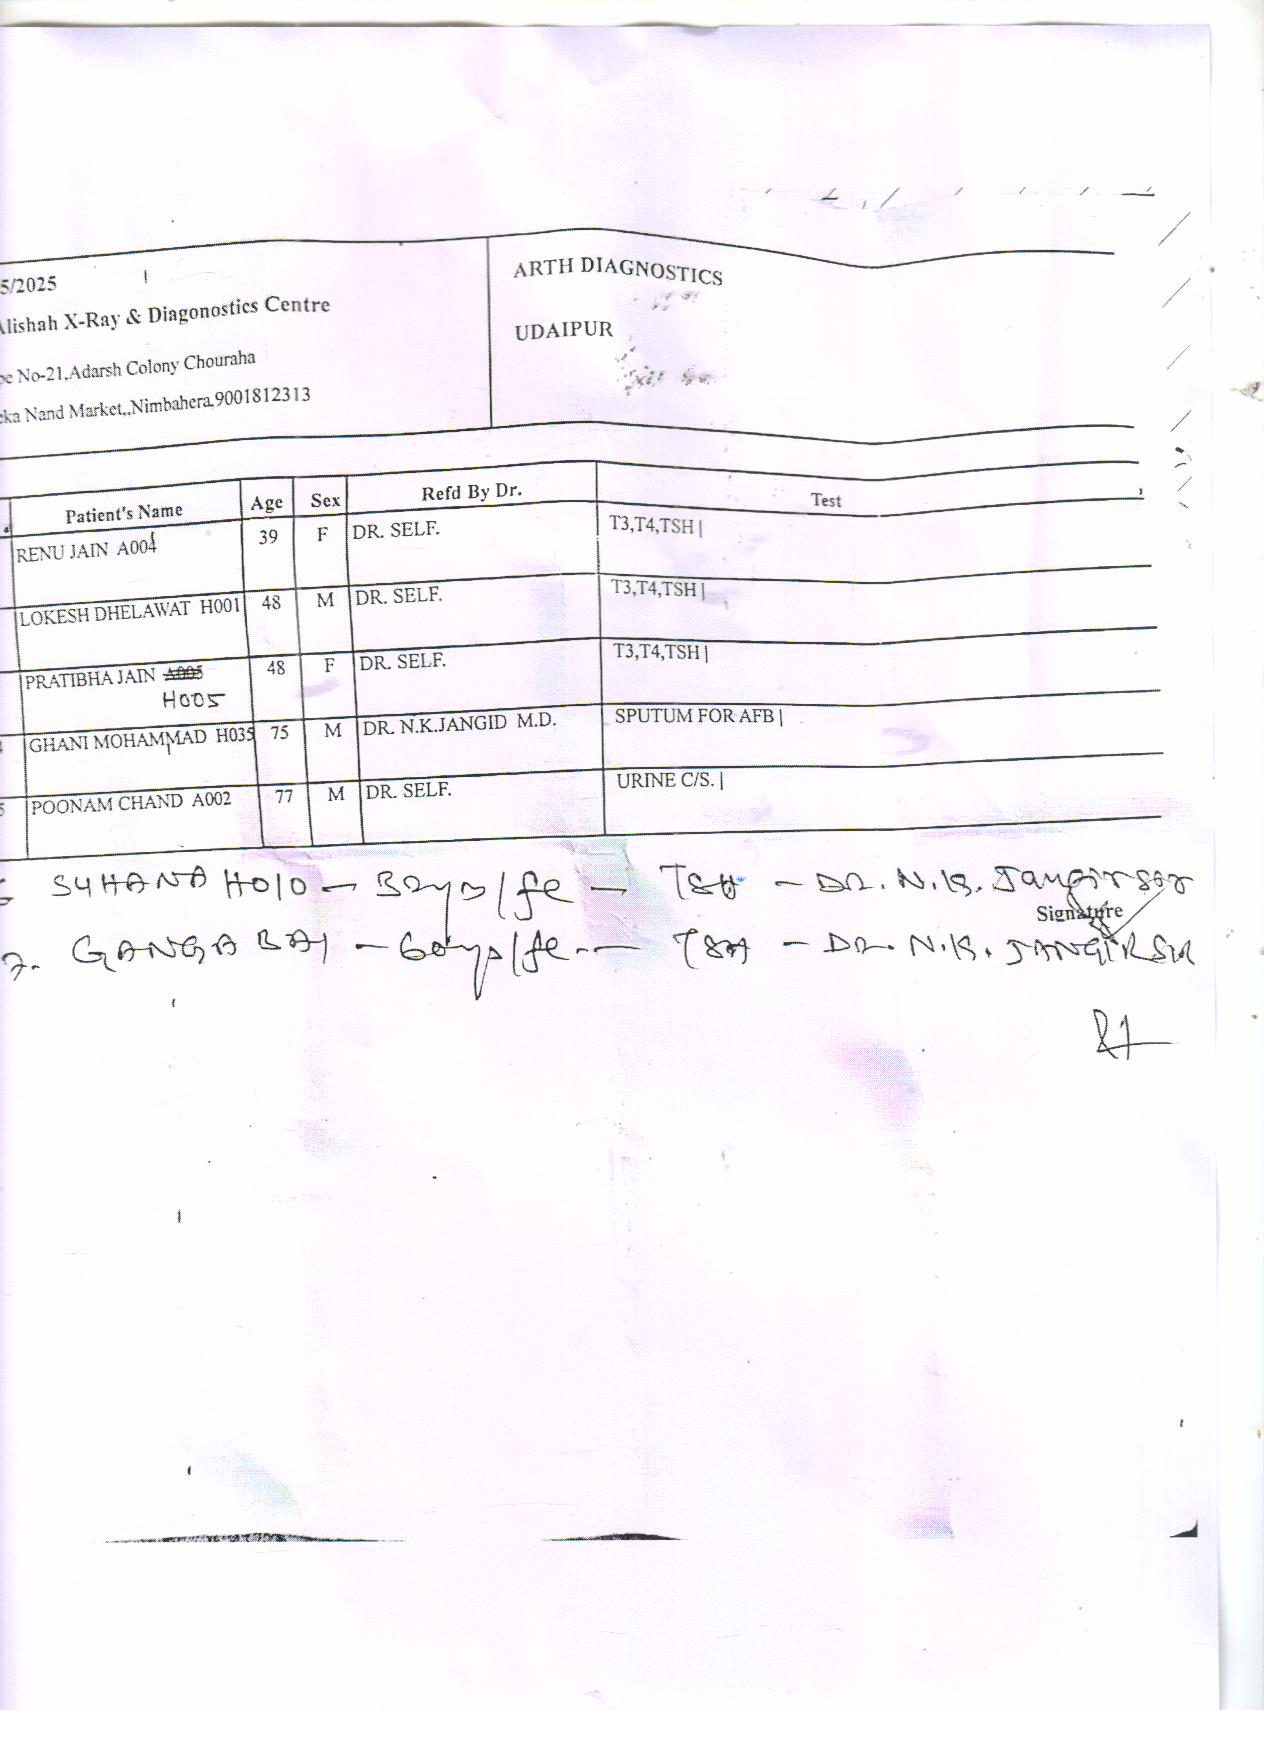 5/2025
Alishah X-Ray & Diagonostics Centre
No-21,Adarsh Colony Chouraha
Nand Market,,Nimbahera,9001812313
ARTH DIAGNOSTICS
UDAIPUR
Patient's Name Age Sex Refd By Dr. Test
RENU JAIN A004 39 F DR. SELF. T3,T4,TSH |
LOKESH DHELAWAT H001 48 M DR. SELF. T3,T4,TSH |
PRATIBHA JAIN A005 48 F DR. SELF. T3,T4,TSH |
H005
GHANI MOHAMMAD H035 75 M DR. N.K.JANGID M.D. SPUTUM FOR AFB |
5 POONAM CHAND A002 77 M DR. SELF. URINE C/S. |
SUHANA H010 - 32 / fe - TSH - DR. N.K.
Signature
7. GANGA BAI - 60 / fe - TSH - DR. N.K.